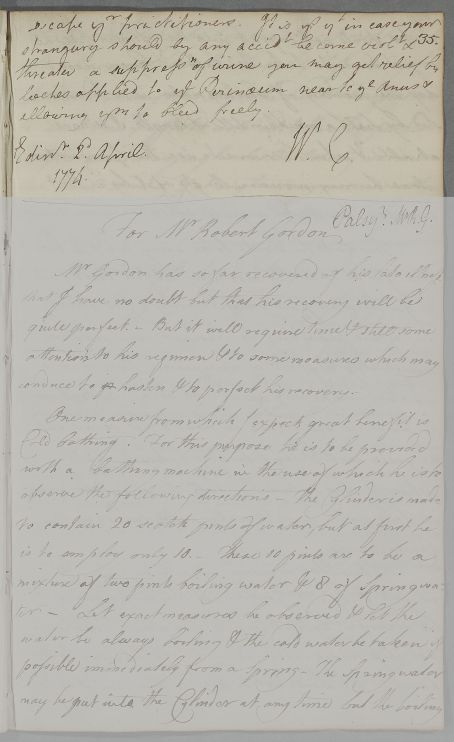 escape yr practitioners. It is yt yt in case your
35.
strangury should by any accidt. become violt. &
threaten a suppressn. of urine you may get relief by
leeches applied to ye Perinæum near to ye Anus &
allowing ym to bleed freely.
W. C
Edinr. 2d. April.
1774.
Palsy. Mr. R. G.
For Mr. Robert Gordon
Mr Gordon has so far recovered of his late illness
that I have no doubt but that his recovery will be
quite perfect. - But it will require time & still some
attention to his regimen & to some measures which may
conduce to hasten & to perfect his recovery.
One measure from which I expect great benefit is
Cold bathing. For this purpose he is to be provided
with a bathing machine in the use of which he is to
observe the following directions - the Cylinder is made
to contain 20 scotch pints of water, but at first he
is to employ only 10. - These 10 pints are to be a
mixture of two pints boiling water & 8 of Spring wa-
ter - Let exact measures be observed & let the
water be always boiling & the cold water be taken if
possible immediately from a Spring - The Spring water
may be put into the Cylinder at any time but the boiling